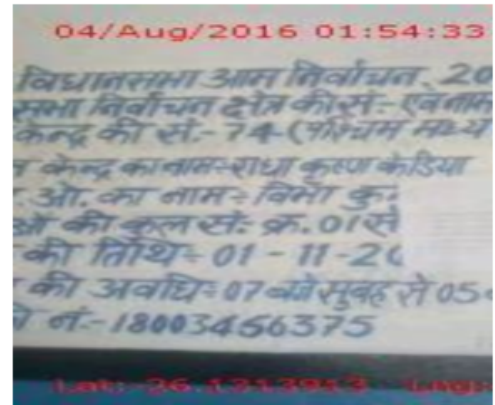 04/Aug/2016 01:54:33
विधानसभा आम निर्वाचन, 20
सभा निर्वाचन क्षेत्र की सं:- एवं नाम
केन्द्र की सं.- 74 (पश्चिम मध्य
केन्द्र का नाम:- राधा कृष्ण केडिया
ओ. का नाम:- विभा कु:
ओ की कुल सं: क्र. 01 से
की तिथि:- 01-11-20
की अवधि:- 07 बजे सुबह से 05
नं.- 18003456375
Lat:-26.1213913 Lng: